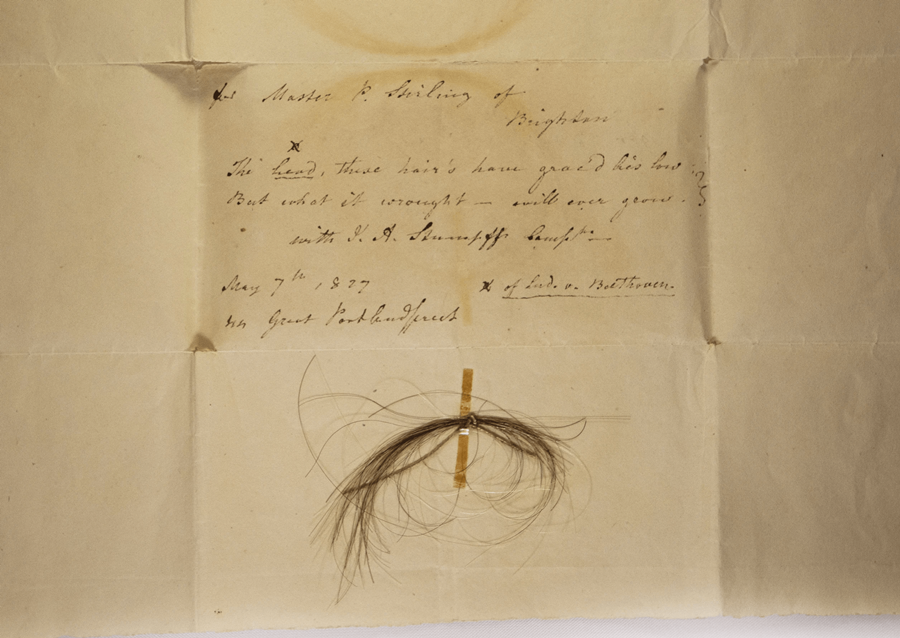 for Master P. Stirling of
Brighton
x
The head, these hair's have grac'd lies low
But what it wrought — will ever grow.
with J. A. Stumpff's Compts
May 7th, 1827
x of Lud. v. Beethoven.
44 Great Portland Street